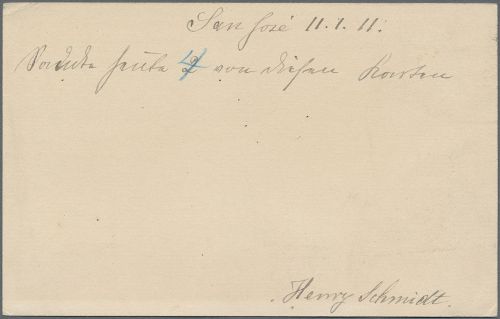 San José 11.1.11.
Sandte heute von diesen Karten
Henry Schmidt.